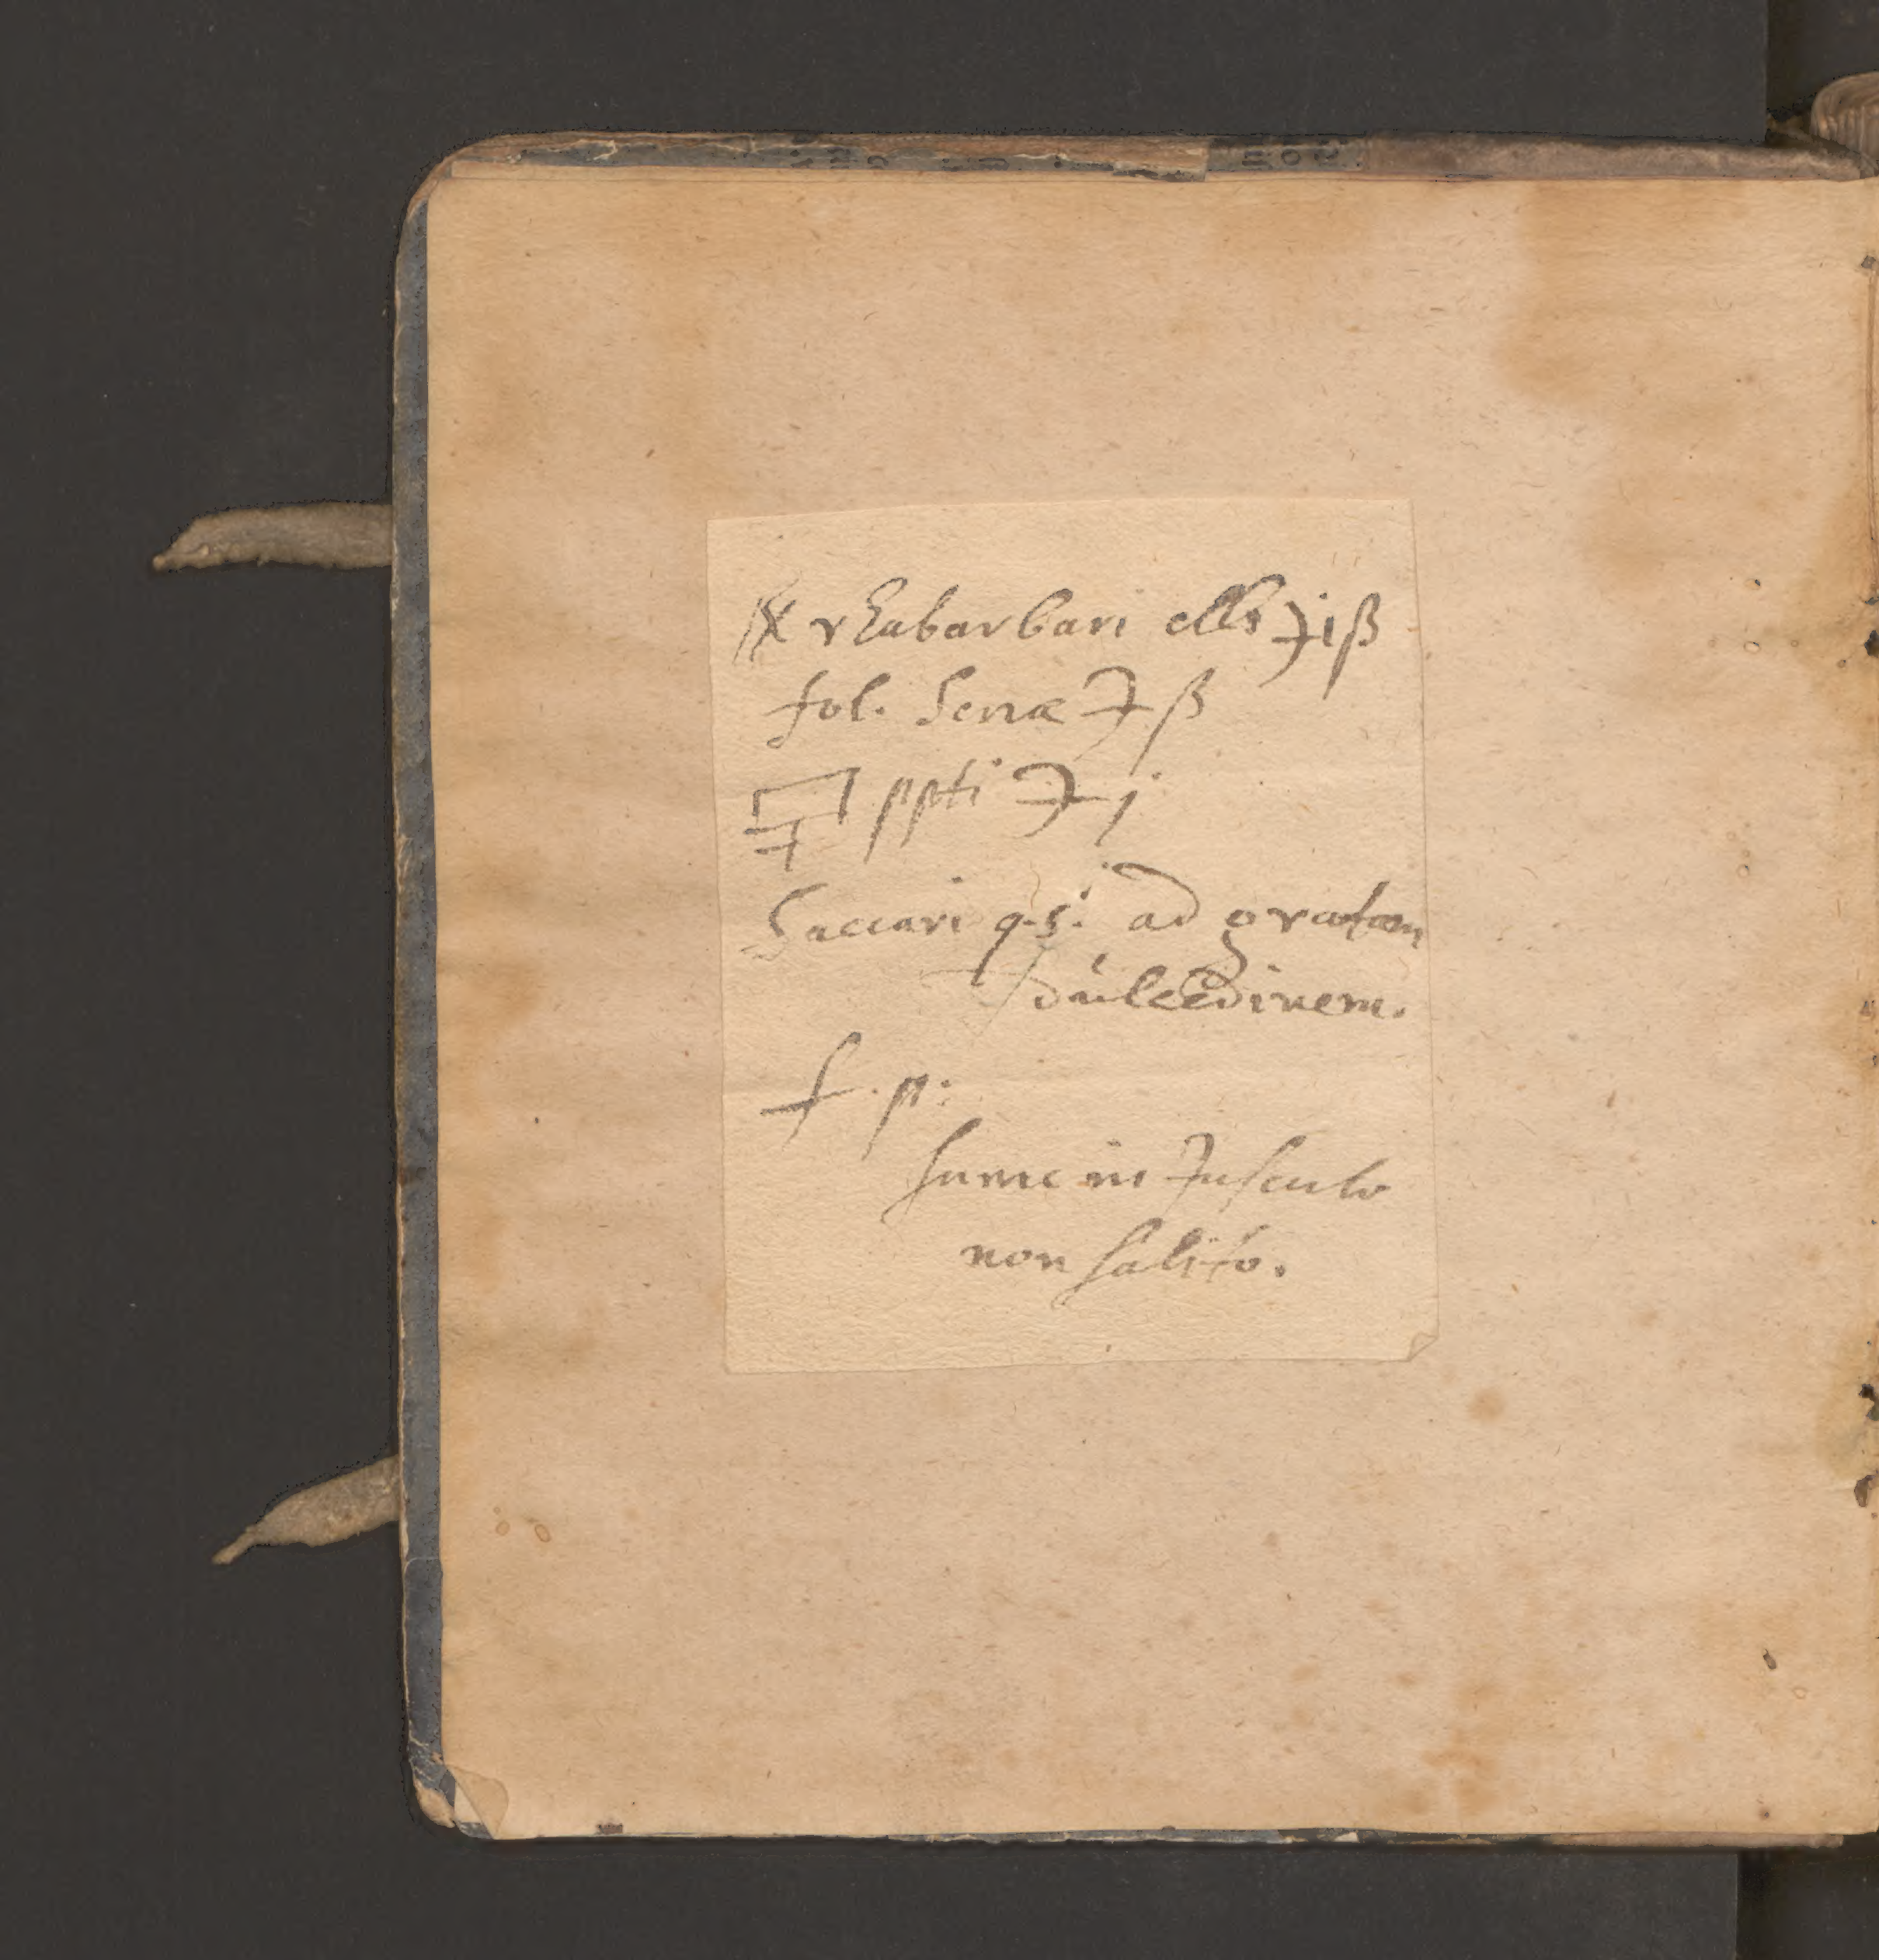 ℞ rhabarbari ℈iß
fol. Senæ ℈ß
ppti ℈j
Saccari q.s. ad gratam
dulcedinem.
f. p:
Sume in Jusculo
non salito.